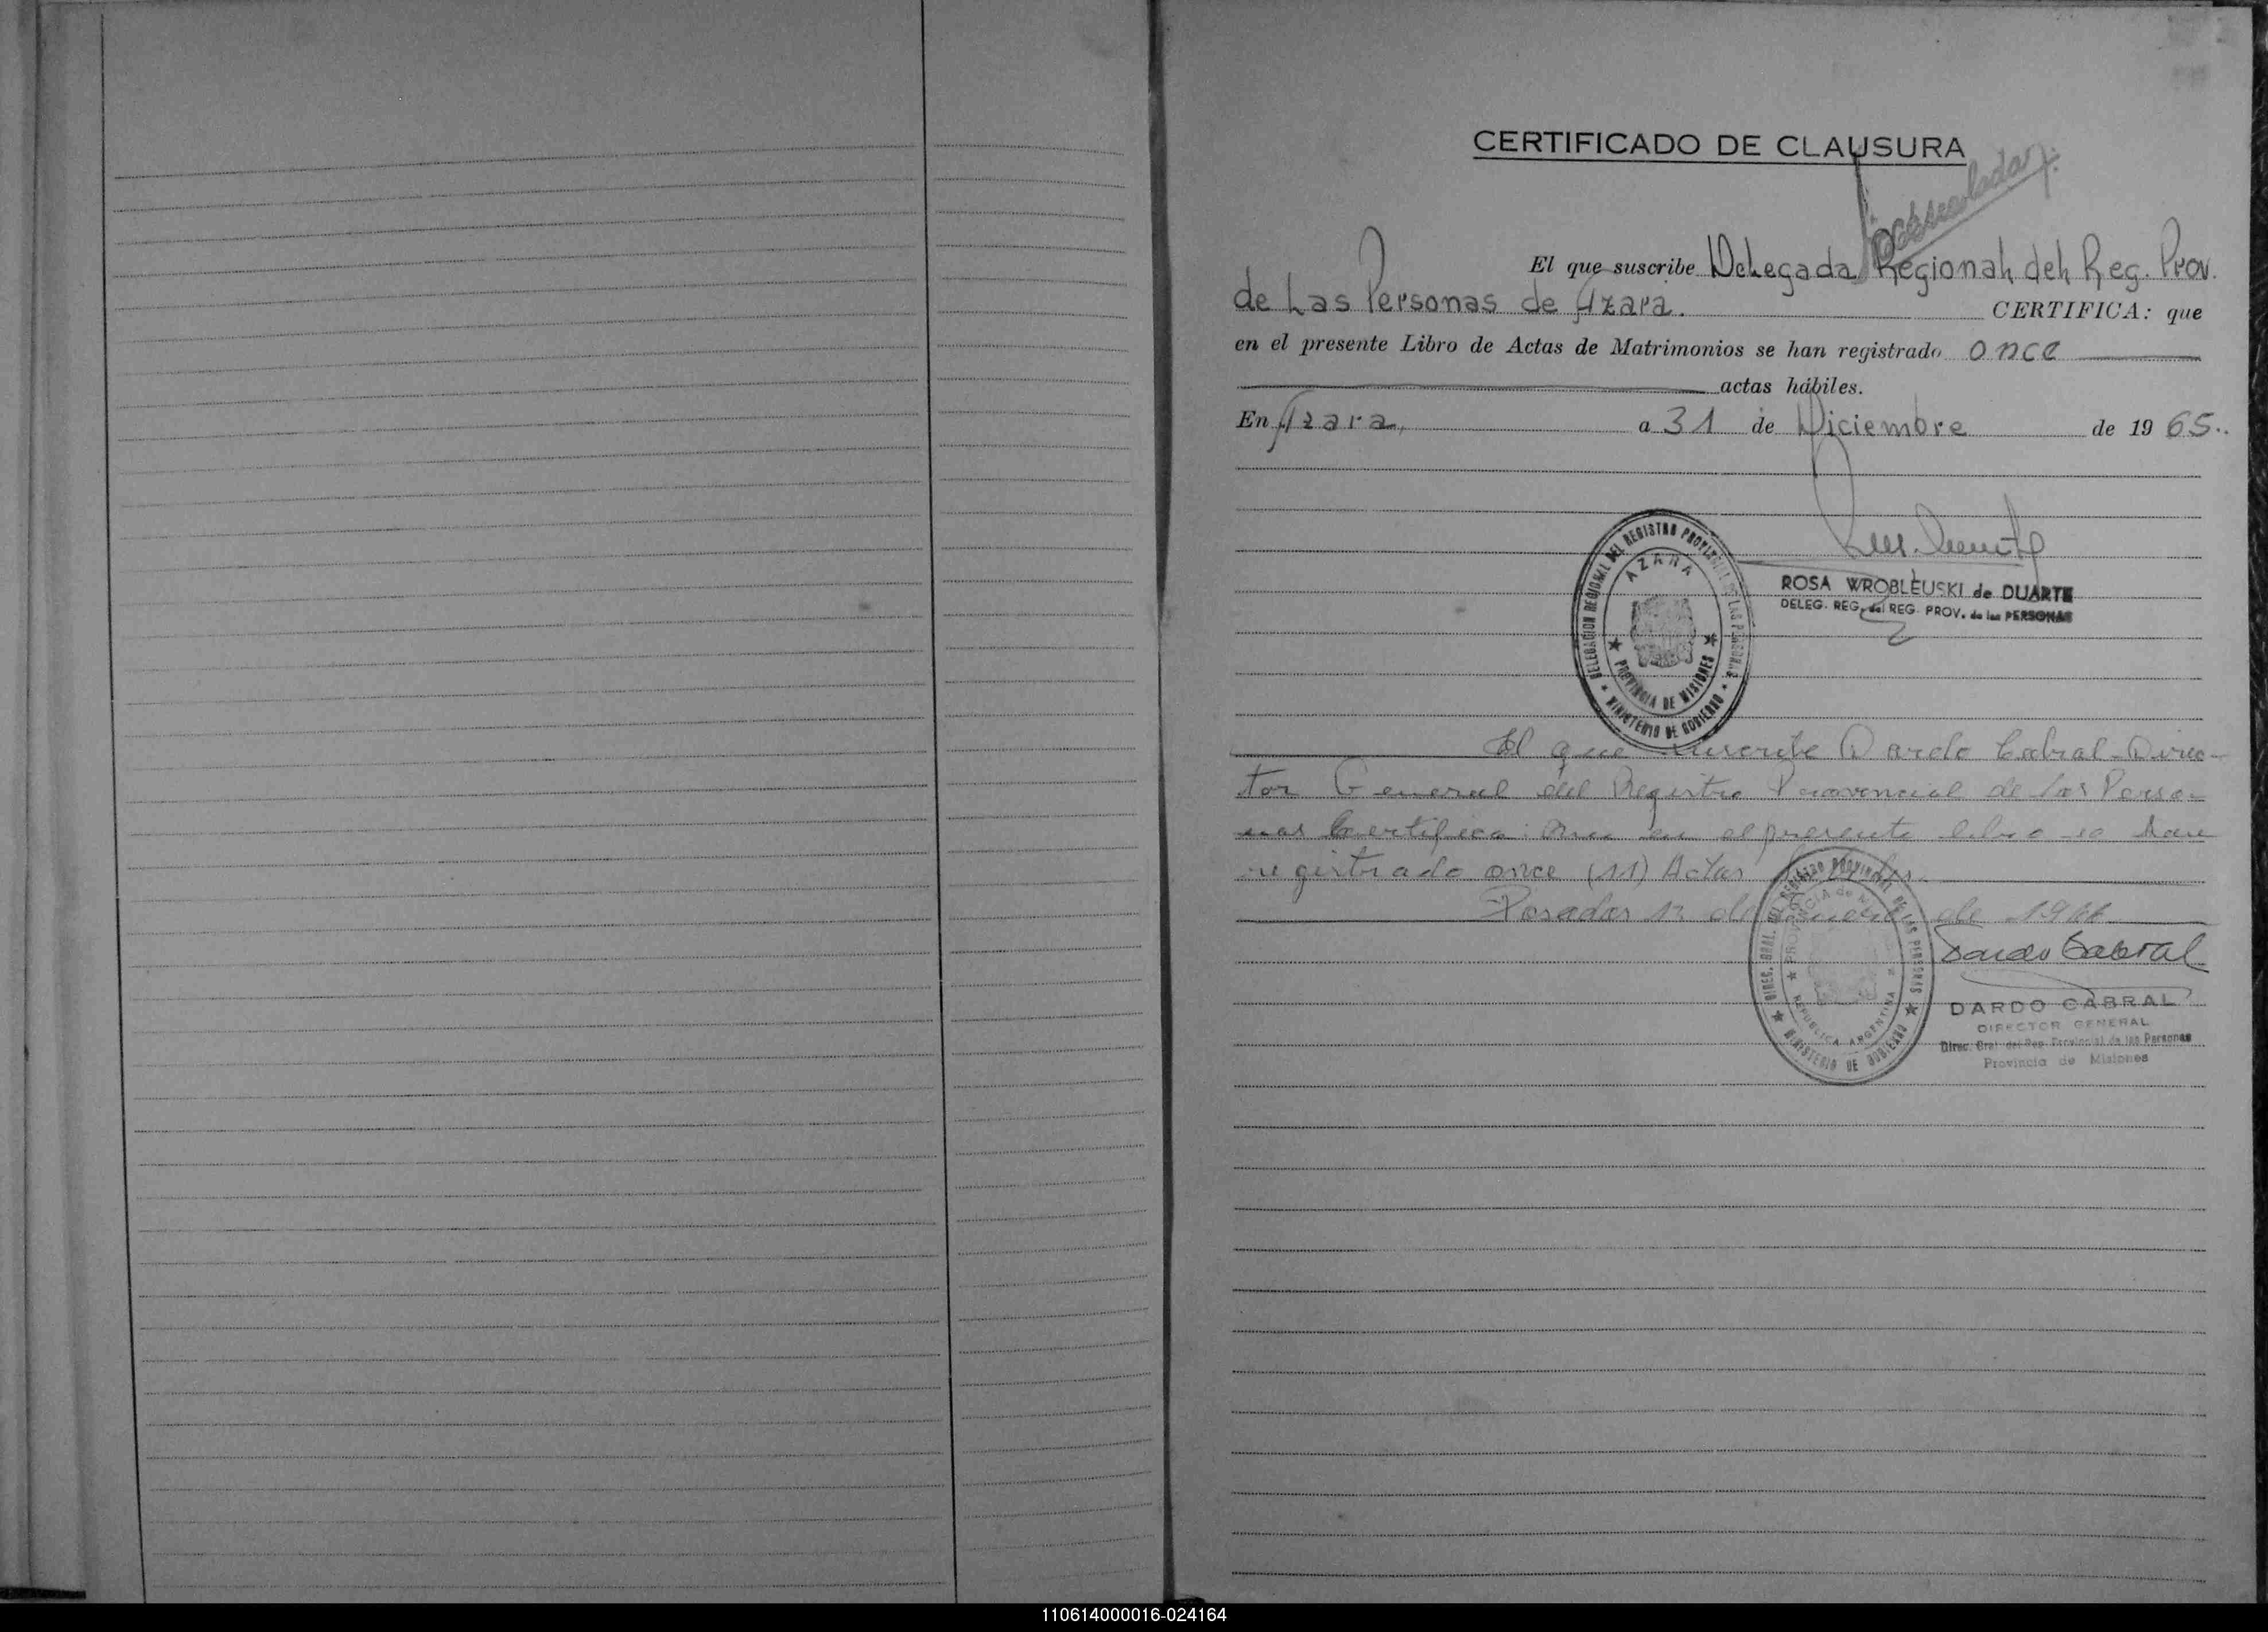 CERTIFICADO DE CLAUSURA
El que suscribe Delegada Regional del Reg. Prov.
de Las Personas de Azara. CERTIFICA: que
en el presente Libro de Actas de Matrimonios se han registrado once
actas hábiles.
En Azara, a 31 de Diciembre de 1965.
DELEGACION REGIONAL DEL REGISTRO PROVINCIAL DE LAS PERSONAS
AZARA
PROVINCIA DE MISIONES
MINISTERIO DE GOBIERNO
ROSA WROBLEUSKI de DUARTE
DELEG. REG. del REG. PROV. de las PERSONAS
El que suscribe Dardo Cabral-Direc-
tor General del Registro Provincial de las Perso-
nas Certifica: Que en el presente libro se han
registrado once (11) Actas
Posadas 12 de de 1966
DIREC. GRAL. DEL REGISTRO PROVINCIAL DE LAS PERSONAS
PROVINCIA de
REPUBLICA ARGENTINA
MINISTERIO DE GOBIERNO
Dardo Cabral
DARDO CABRAL
DIRECTOR GENERAL
Direc. Gral. del Reg. Provincial de las Personas
Provincia de Misiones
110614000016-024164